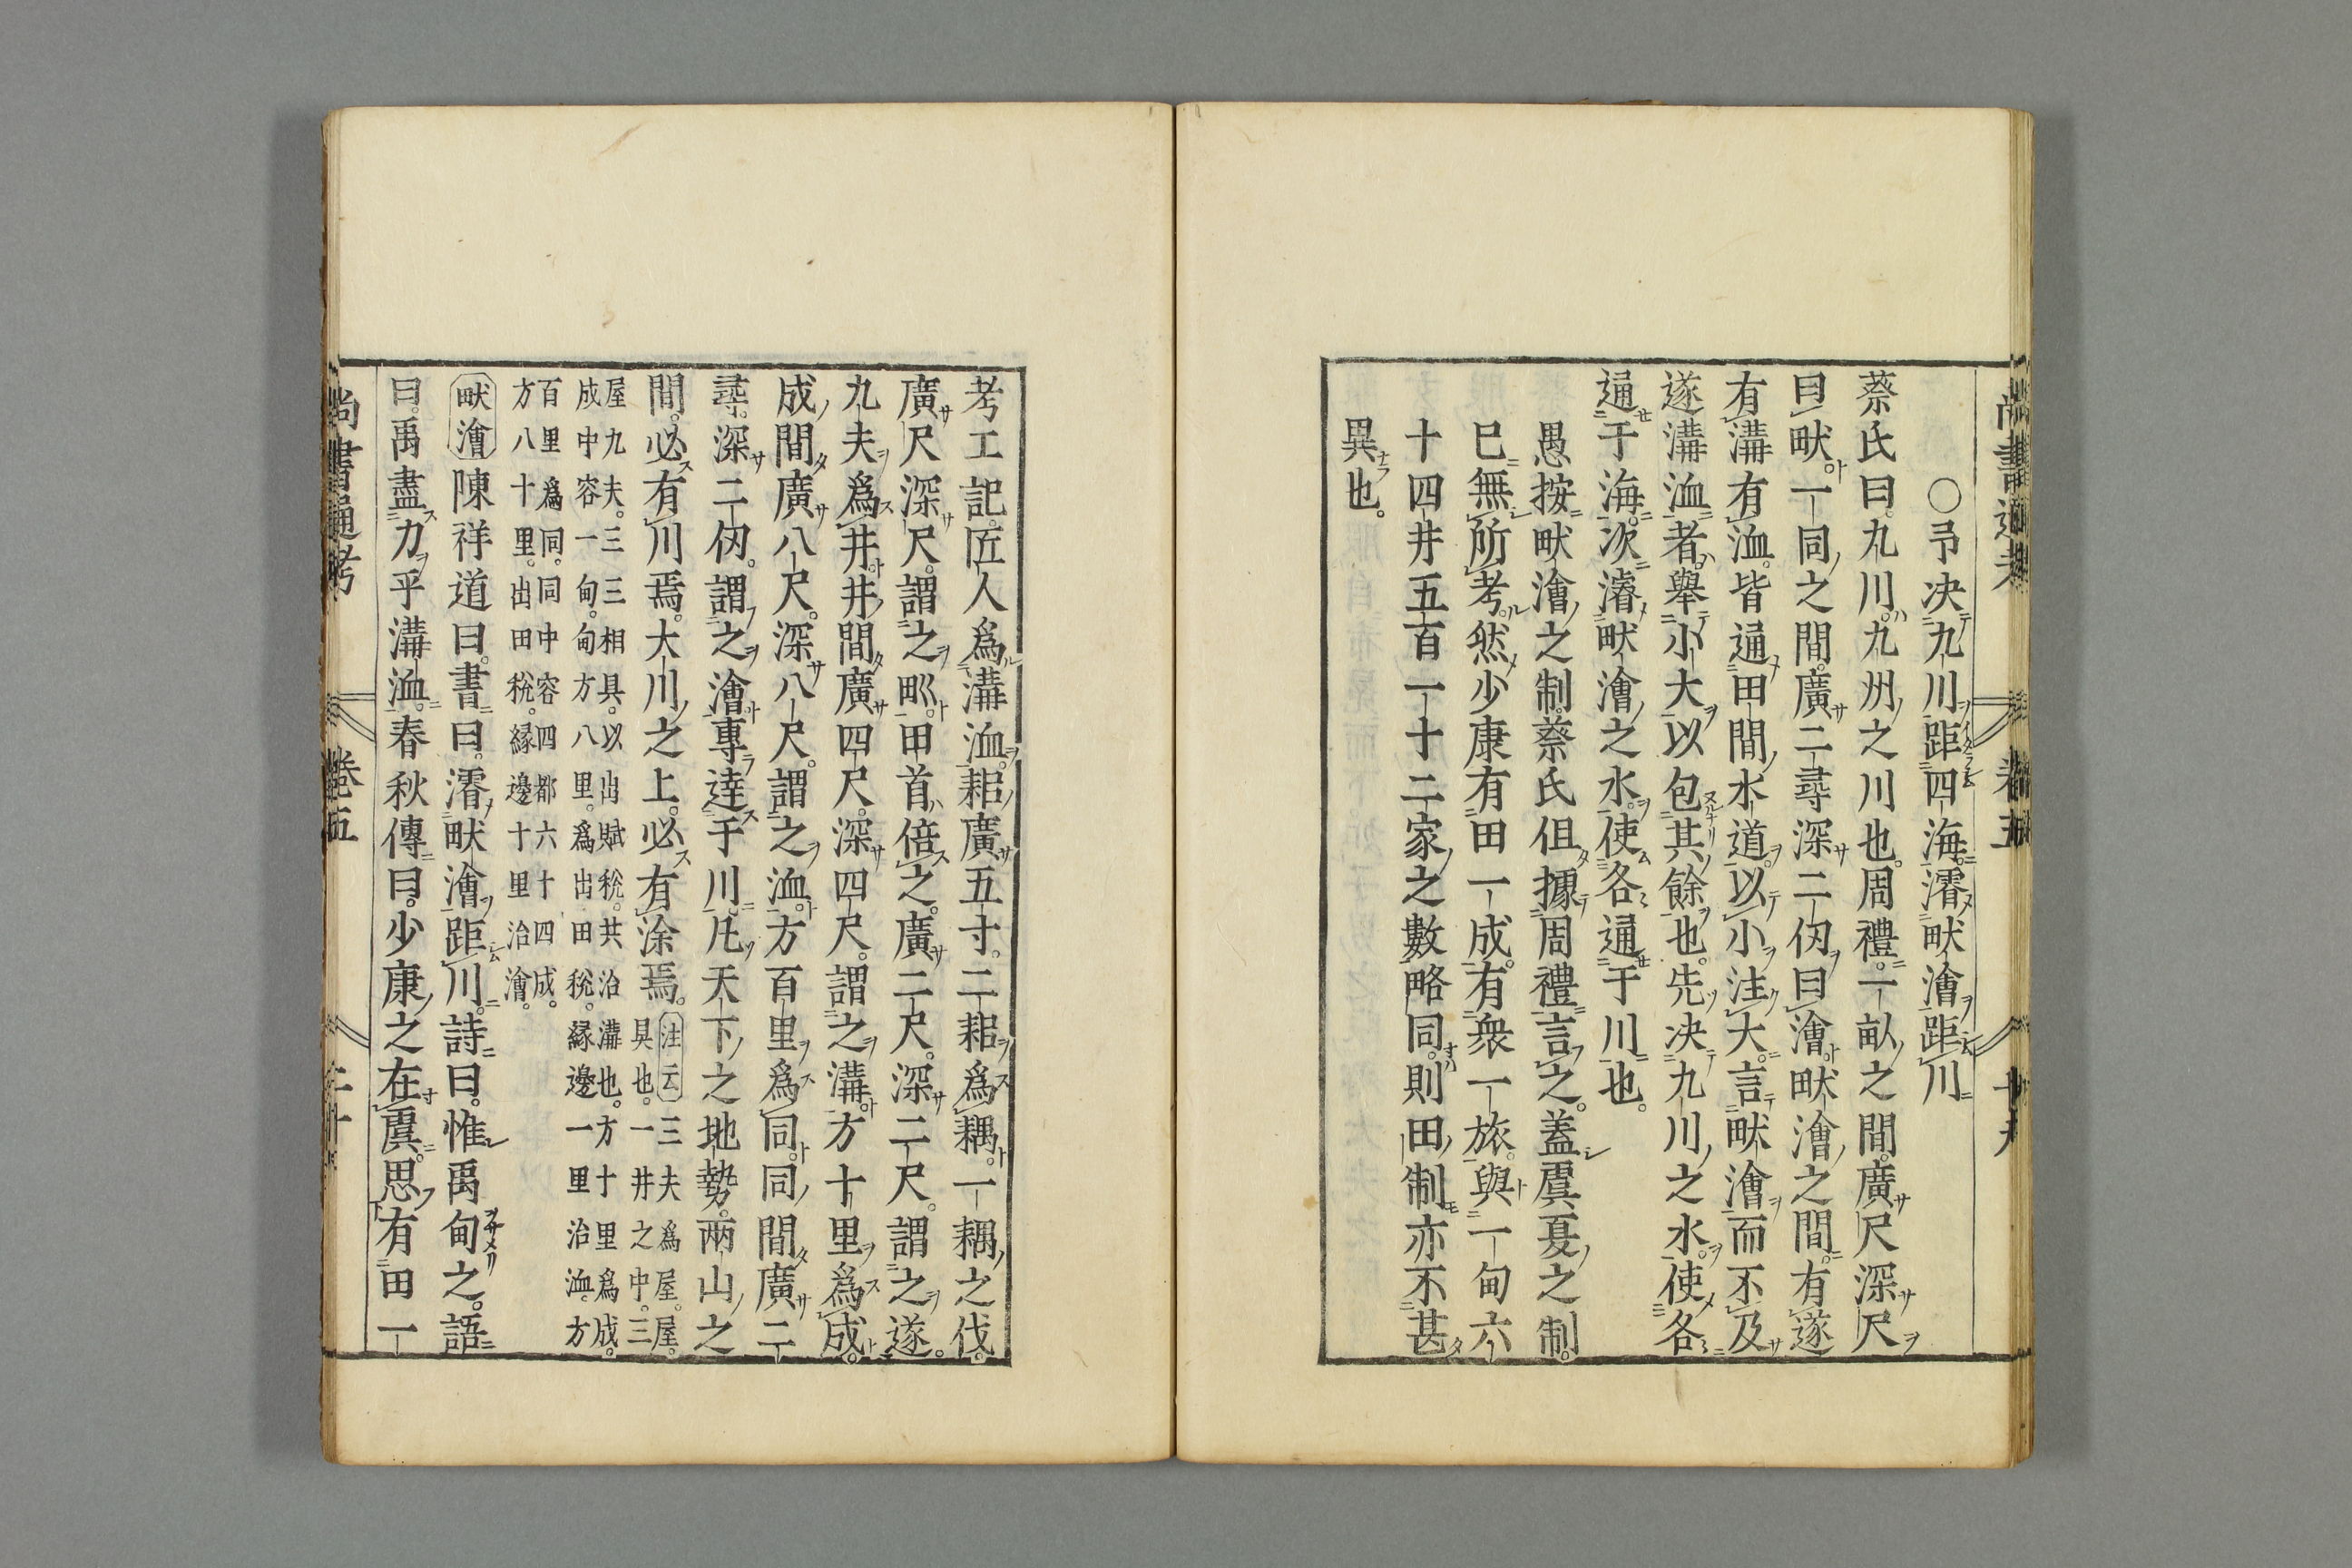 〇予决九川距四海濬畎澮距川
蔡氏曰九川九州之川也周禮一畝之間廣尺深尺
曰畎一同之間廣二尋深二仞曰澮畎澮之間有遂
有溝有洫皆通田間水道以小注大言畎澮而不及
遂溝洫者舉小大以包其餘也先决九川之水使各
通于海次濬畎澮之水使各通于川也
愚按畎澮之制蔡氏但據周禮言之蓋虞夏之制
已無所考然少康有田一成有衆一旅與一甸六
十四井五百一十二家之數略同則田制亦不甚
異也
考工記匠人爲溝洫耜廣五寸二耜爲耦一耦之伐
廣尺深尺謂之甽田首倍之廣二尺深二尺謂之遂
九夫爲井井間廣四尺深四尺謂之溝方十里爲成
成間廣八尺深八尺謂之洫方百里爲同同間廣二
尋深二仞謂之澮專達于川凡天下之地勢兩山之
間必有川焉大川之上必有涂焉注云三夫爲屋屋
具也一井之中三
屋九夫三三相具以出賦稅共治溝也方十里爲成
成中容一甸甸方八里爲出田稅緣邊一里治洫方
百里爲同同中容四都六十四成
方八十里出田稅緣邊十里治澮
畎澮陳祥道曰書曰濬畎澮距川詩曰惟禹甸之語
曰禹盡力乎溝洫春秋傳曰少康之在虞思有田一
尚書通考 卷五